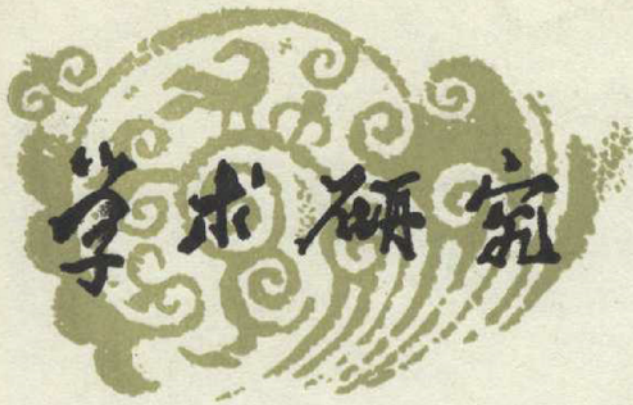 学术研究